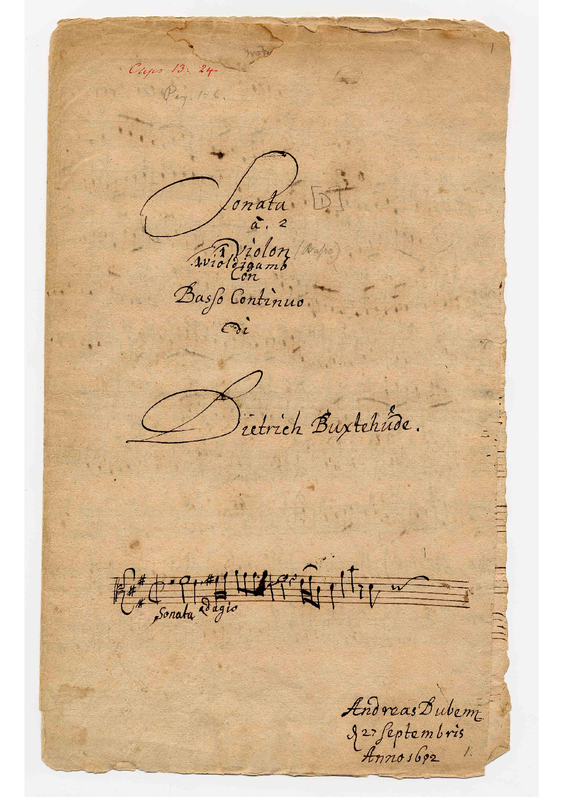 Caps 13: 24
Pag. 1-6.
Sonata [D]
à. 2
1 Violon
1 Violdigamb
Con
Basso Continuo
di
Dietrich Buxtehude.
Sonata adagio
Andreas Düben
27 Septembris
Anno 1692